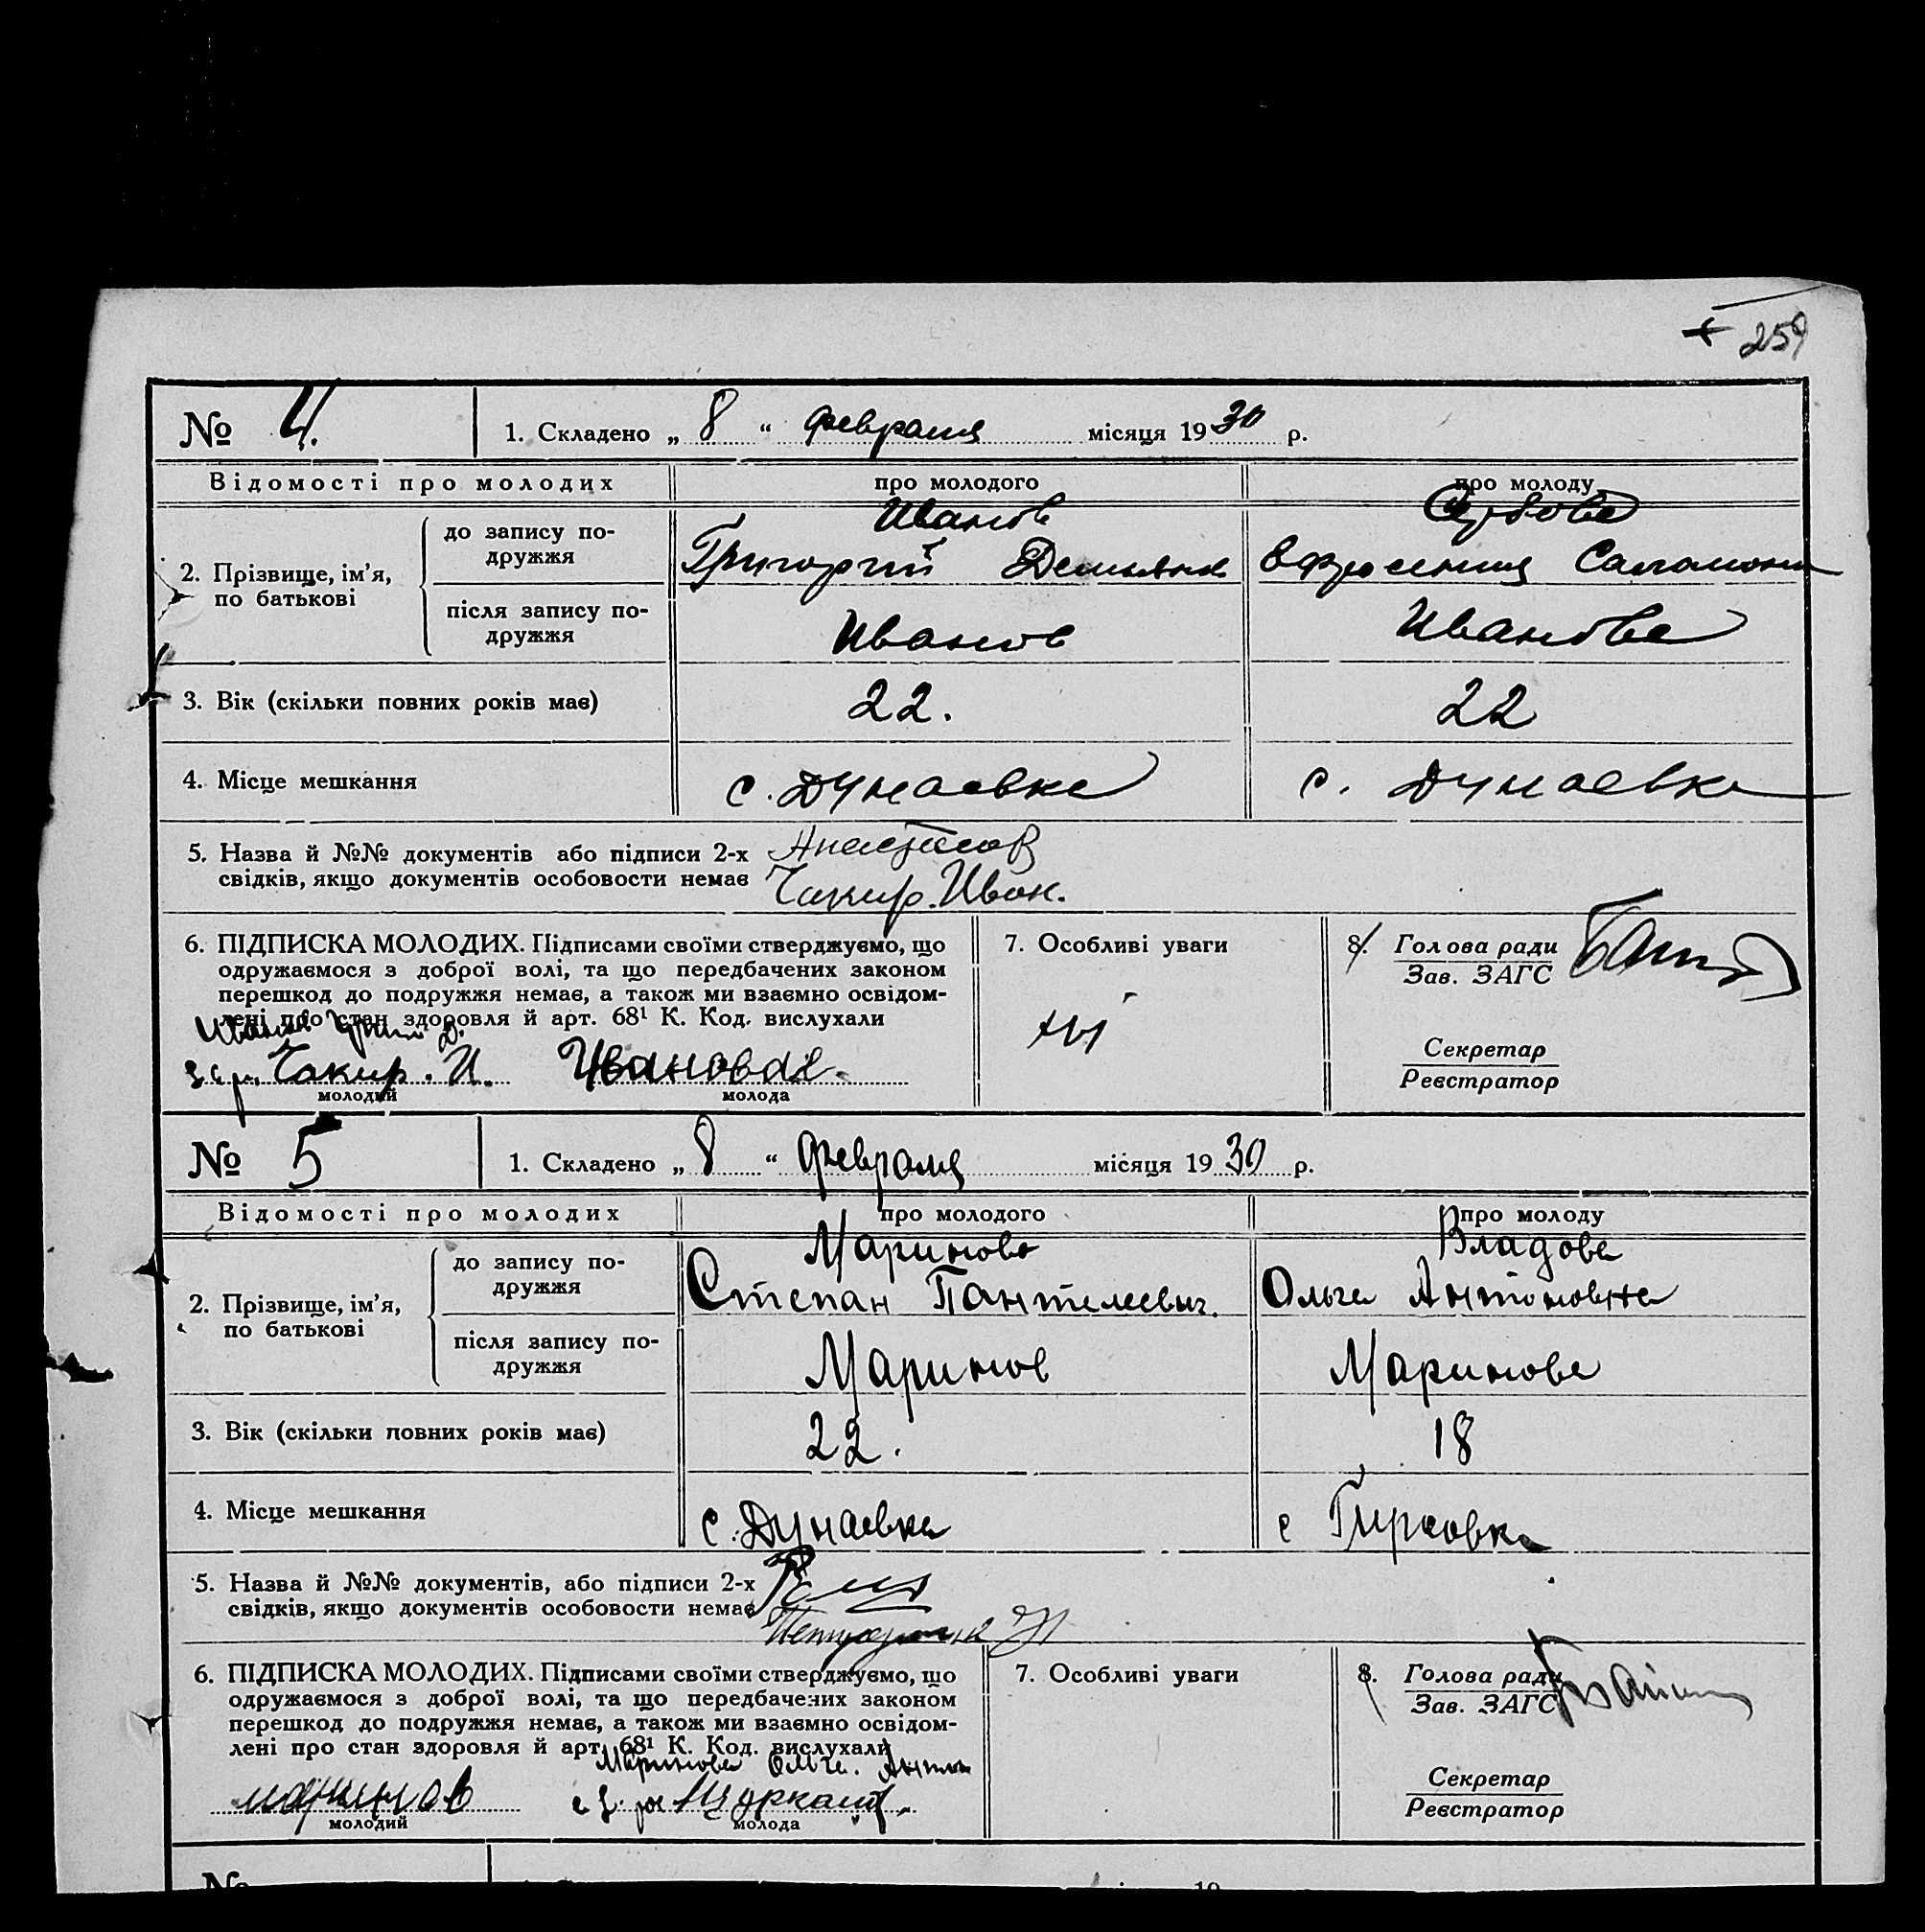 259
№ 4.
1. Складено „ 8 “ февраля місяця 1930 р.
Відомості про молодих про молодого про молоду
2. Прізвище, ім’я, по батькові
до запису по-
дружжя
Иванов
Григорий Демьян
Ефросения Саламон
після запису по-
дружжя
Иванов
Иванова
3. Вік (скільки повних років має) 22. 22
4. Місце мешкання с. Дунаевка с. Дунаевка
5. Назва й №№ документів або підписи 2-х
свідків, якщо документів особовости немає
Анастасов
Чакир. Иван.
6. ПІДПИСКА МОЛОДИХ. Підписами своїми стверджуємо, що
одружаємося з доброї волі, та що передбачених законом
перешкод до подружжя немає, а також ми взаємно освідом-
лені про стан здоровля й арт. 68¹ К. Код. вислухали
Иванов Григ Д.
за р. Чакир. И. Иванова
молодий молода
7. Особливі уваги
8. Голова ради
Зав. ЗАГС
Секретар
Реєстратор
№ 5
1. Складено „ 8 “ февраля місяця 1930 р.
Відомості про молодих про молодого про молоду
2. Прізвище, ім’я, по батькові
до запису по-
дружжя
Маринов
Степан Пантелеевич.
Владова
Ольга Антоновна
після запису по-
дружжя
Маринов
Маринова
3. Вік (скільки повних років має) 22. 18
4. Місце мешкання с. Дунаевка с Гирсовка
5. Назва й №№ документів, або підписи 2-х
свідків, якщо документів особовости немає
6. ПІДПИСКА МОЛОДИХ. Підписами своїми стверджуємо, що
одружаємося з доброї волі, та що передбачених законом
перешкод до подружжя немає, а також ми взаємно освідом-
лені про стан здоровля й арт. 68¹ К. Код. вислухали
Маринова Ольга. Антон
маринов
молодий молода
7. Особливі уваги
8. Голова ради
Зав. ЗАГС
Секретар
Реєстратор
№